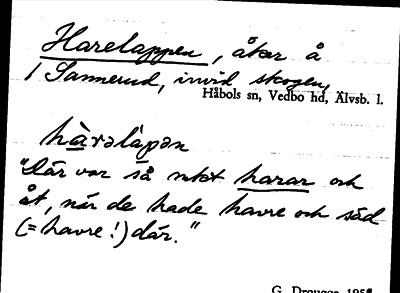 Harelappen, åker å
1 Sannerud, invid skogen,
Håbols sn, Vedbo hd, Älvsb. l.
hàrəlàpən
"Där var så mket harar och
åt, när de hade havre och säd
(= havre!) där."
G. Drougge 195